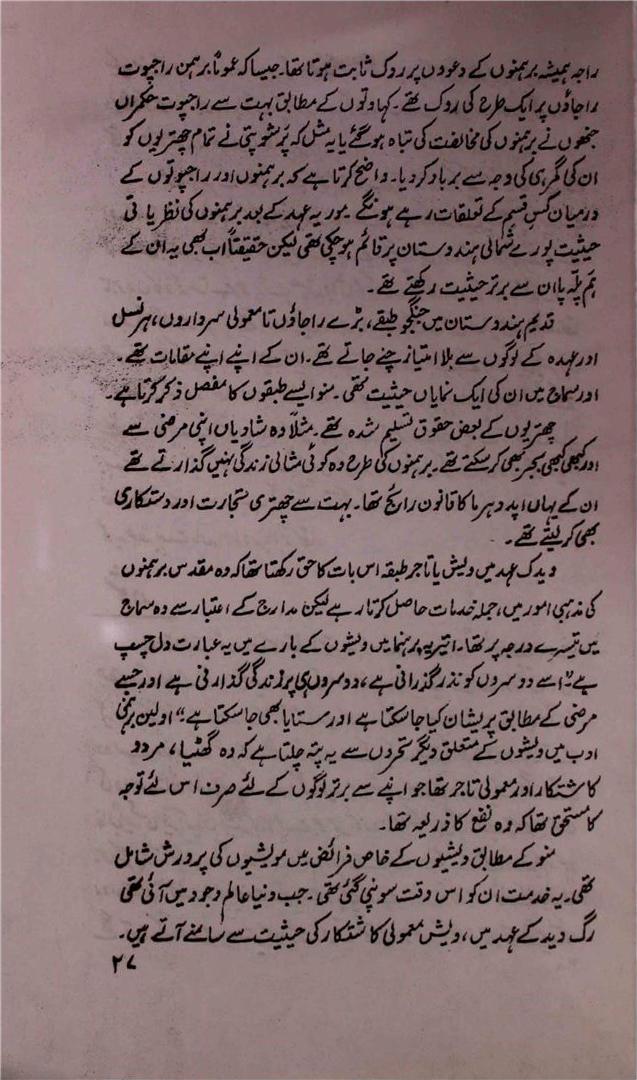 راجہ ہمیشہ برہمنوں کے دعووں پر روک ثابت ہوتا تھا۔ جیسا کہ عموماً برہمن راجپوت
راجاؤں پر ایک طرح کی روک تھے۔ کہاوتوں کے مطابق بہت سے راجپوت حکمراں
جنھوں نے برہمنوں کی مخالفت کی تباہ ہو گئے یا یہ مثل کہ پرشوپتی نے تمام چھتریوں کو
ان کی گمرہی کی وجہ سے برباد کر دیا۔ واضح کرتا ہے کہ برہمنوں اور راجپوتوں کے
درمیان کس قسم کے تعلقات رہے ہونگے۔ موریہ عہد کے بعد برہمنوں کی نظریاتی
حیثیت پورے شمالی ہندوستان پر قائم ہو چکی تھی لیکن حقیقتاً اب بھی یہ ان کے
ہم پلّہ یا ان سے برتر حیثیت رکھتے تھے۔
قدیم ہندوستان میں جنگجو طبقے، بڑے راجاؤں تا معمولی سرداروں، ہر نسل
اور عہدہ کے لوگوں سے بلا امتیاز چنے جاتے تھے۔ ان کے اپنے اپنے مقامات تھے۔
اور سماج میں ان کی ایک نمایاں حیثیت تھی۔ منو ایسے طبقوں کا مفصل ذکر کرتا ہے۔
چھتریوں کے بعض حقوق تسلیم شدہ تھے۔ مثلاً وہ شادیاں اپنی مرضی سے
اور کبھی کبھی بجبر بھی کر سکتے تھے۔ برہمنوں کی طرح وہ کوئی مثالی زندگی نہیں گذارتے تھے
ان کے یہاں اپد دہرما کا قانون رائج تھا۔ بہت سے چھتری تجارت اور دستکاری
بھی کر لیتے تھے۔
ویدک عہد میں ویش یا تاجر طبقہ اس بات کا حق رکھتا تھا کہ وہ مقدس برہمنوں
کی مذہبی امور میں، جملہ خدمات حاصل کرتا رہے لیکن مدارج کے اعتبار سے وہ سماج
میں تیسرے درجہ پر تھا۔ اتیریہ برہمنا میں ویشوں کے بارے میں یہ عبارت دل چسپ
ہے "اسے دوسروں کو نذر گذرانی ہے، دوسروں ہی پر زندگی گذارنی ہے اور جسے
مرضی کے مطابق پریشان کیا جا سکتا ہے اور ستایا بھی جا سکتا ہے" اولین برہمنی
ادب میں ویشوں کے متعلق دیگر تحریروں سے یہ پتہ چلتا ہے کہ وہ گھٹیا، مردو
کاشتکار اور معمولی تاجر تھا جو اپنے سے برتر لوگوں کے لئے صرف اس لئے توجہ
کا مستحق تھا کہ وہ نفع کا ذریعہ تھا۔
منو کے مطابق ویشیوں کے خاص فرائض میں مویشیوں کی پرورش شامل
تھی۔ یہ خدمت ان کو اس وقت سونپی گئی تھی۔ جب دنیا عالم وجود میں آئی تھی
رگ وید کے عہد میں، ویش معمولی کاشتکار کی حیثیت سے سامنے آتے ہیں۔
۲۷